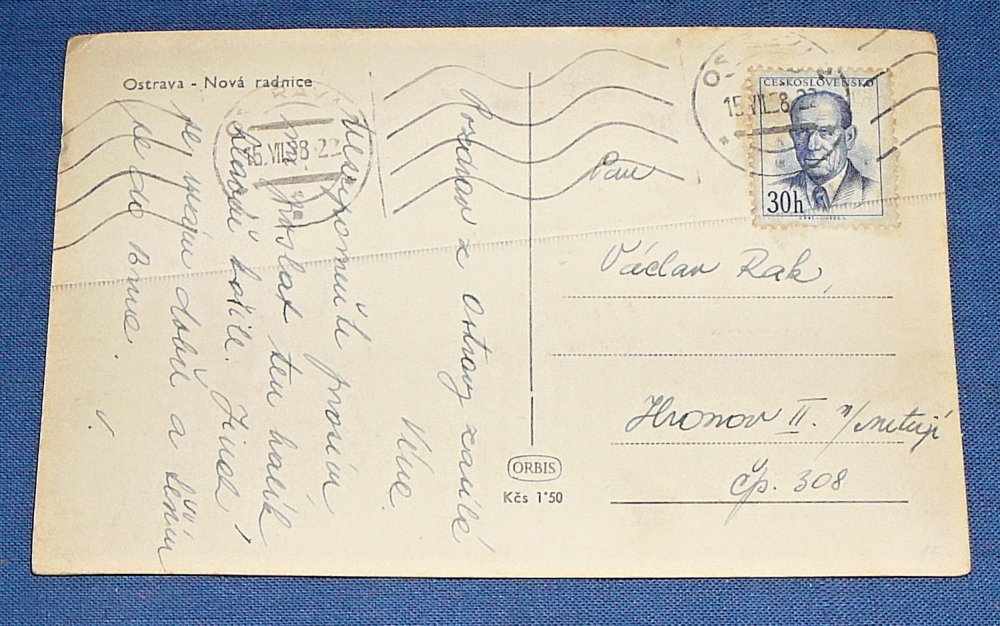 Ostrava - Nová radnice
Pozdrav z Ostravy zasílá
Vlve.
prosím
poslat ten balík
košile. Jinak
je, dobrá a těším
se do Brna.
ORBIS
Kčs 1'50
ČESKOSLOVENSKO
30h
15.VII.58-22
15.VII.58-22
Pan
Václav Rak,
Hronov II. n/Metují
čp. 308